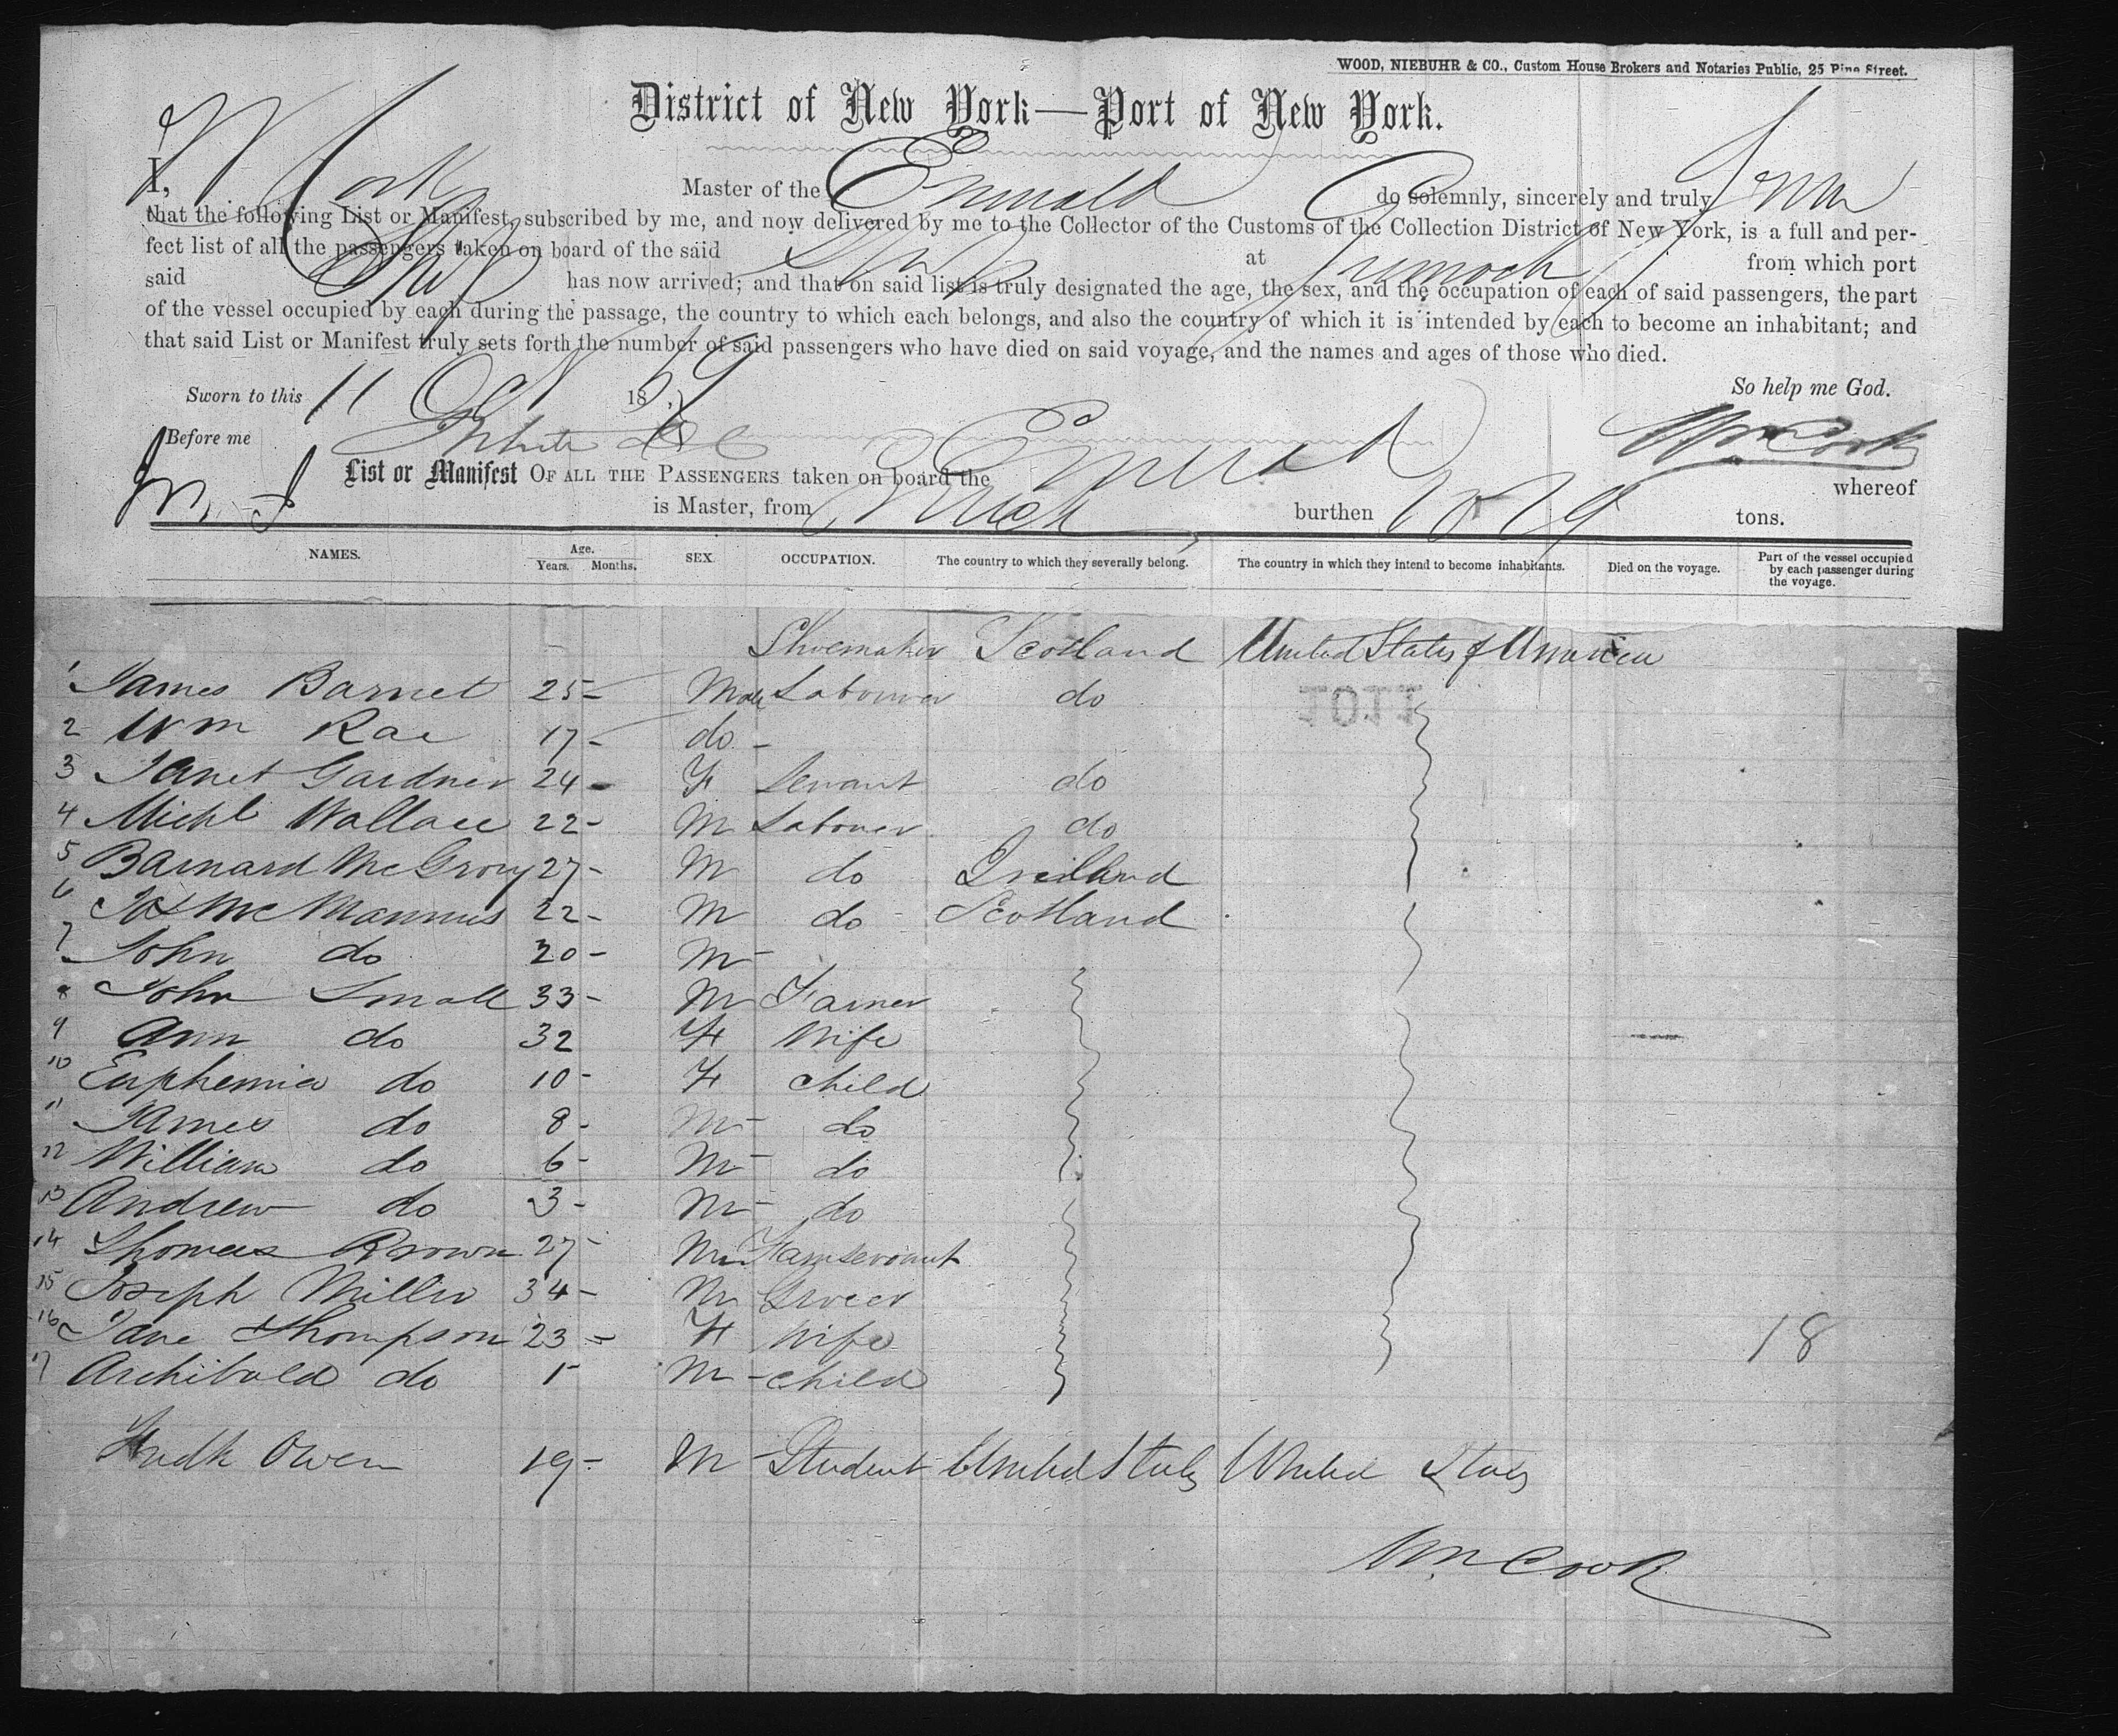 WOOD, NIEBUHR & CO., Custom House Brokers and Notaries Public, 25 Pine Street.
District of New York—Port of New York.
I, W Cook Master of the Emerald do solemnly, sincerely and truly
that the following List or Manifest, subscribed by me, and now delivered by me to the Collector of the Customs of the Collection District of New York, is a full and per-
fect list of all the passengers taken on board of the said Ship at from which port
said Ship has now arrived; and that on said list is truly designated the age, the sex, and the occupation of each of said passengers, the part
of the vessel occupied by each during the passage, the country to which each belongs, and also the country of which it is intended by each to become an inhabitant; and
that said List or Manifest truly sets forth the number of said passengers who have died on said voyage, and the names and ages of those who died.
Sworn to this 11 Oct 18 So help me God.
Before me Wm Cook
List or Manifest OF ALL THE PASSENGERS taken on board the Emerald whereof
is Master, from burthen tons.
NAMES. Age. Years. Months. SEX. OCCUPATION. The country to which they severally belong. The country in which they intend to become inhabitants. Died on the voyage. Part of the vessel occupied by each passenger during the voyage.
Shoemaker Scotland United States of America
1 James Barnet 25 - Male Labourer do
1011
2 Wm Rae 17 - do -
3 Janet Gardner 24 - F Servant do
4 Michl Wallace 22 - M Labourer do
5 Barnard McGrory 27 - M do Ireland
6 McMannus 22 - M do Scotland
7 John do 20 - M
8 John Small 33 - M Farmer
9 Ann do 32 F Wife
10 Euphemia do 10 - F child
11 James do 8 - M do
12 William do 6 - M do
13 Andrew do 3 - M do
14 Thomas Brown 27 - M Farmservant
15 Joseph Miller 34 - M Grocer
16 Jane Thompson 23 - F Wife 18
17 Archibald do 1 M - child
Fredk Owen 19 - M Student United States United States
Wm Cook